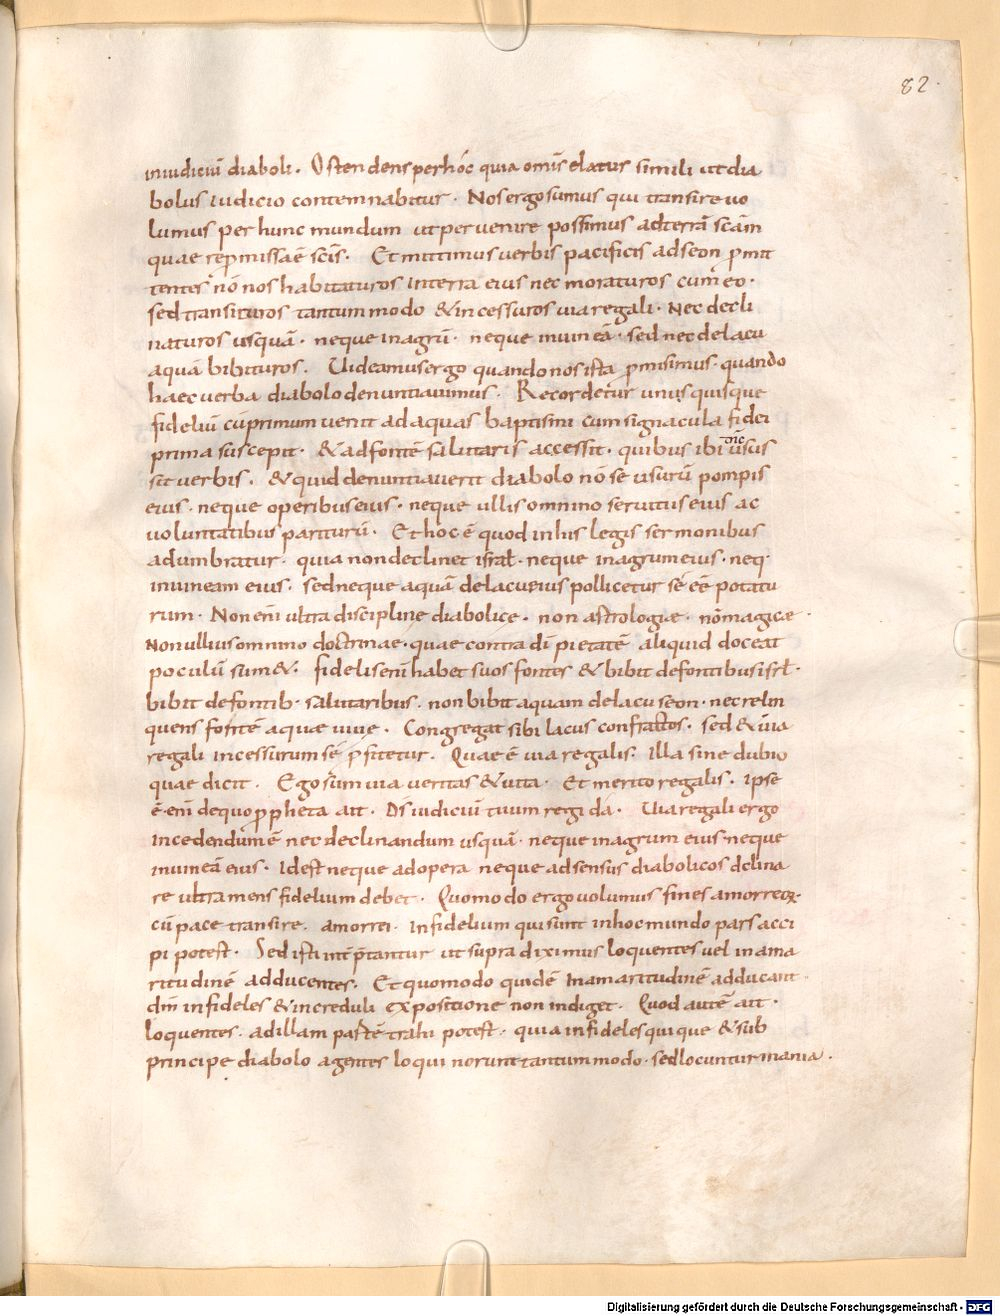 82
iniudiciū diaboli. Ostendens perhóc quia om̄is elatus simili ut dia
bolus iudicio contemnabitur. Nos ergo sumus qui transire uo
lumus per hunc mundum ut peruenire possimus adterrā sc̄am
quae repromissaē sc̄is. Et mittimus uerbis pacificis ad seon p̄mit
tentes nō nos habitaturos interra eius nec moraturos cum eo.
sed transituros tantummodo & incessuros uia regali. Nec decli
naturos usquā. neque inagrū. neque inuineā. sed nec delacu
aquā bibituros. Uideamus ergo quando nos ista p̄misimus. quando
haec uerba diabolo denuntiauimus. Recordetur unusquisque
fideliū cū primum uenit ad aquas baptismi cum signacula fidei
prima suscepit. & ad fontē salutaris accessit. quibus ibi tūc usus
sit uerbis. & quid denuntiauerit diabolo nō se usurū pompis
eius. neque operibus eius. neque ullis omnino seruitus eius ac
uoluntatibus pariturū. Et hoc ē quod inhis legis sermonibus
adumbratur. quia non declinet israhł. neque inagrum eius. neq.
inuineam eius. sed neque aquā delacu eius pollicetur sé eē potatu
rum. Non enī ultra discipline diabolice. non astrologiae. nō magicae.
Non ullius omnino doctrinae. quae contra dī pietatē aliquid doceat
poculū sum&. fidelis enī habet suos fontes & bibit defontibus isrł.
bibit defontib. salutaribus. non bibit aquam delacu seon. nec relin
quens fontē aquae uiue. Congregat sibi lacus confractos. sed & uia
regali incessurum sē p̄fitetur. Quae ē uia regalis. Illa sine dubio
quae dicit. Ego sum uia ueritas & uita. Et merito regalis. Ipse
ē enī dequo propheta ait. Ds̄ iudiciū tuum regi da. Uia regali ergo
incedendum ē nec declinandum usquā. neque inagrum eius neque
inuineā eius. Idest neque adopera neque adsensus diabolicos declina
re ultra mens fidelium debet. Quomodo ergo uolumus fines amorreoꝝ
cū pace transire. amorrei. Infidelium qui sunt inhoc mundo pars acci
pi potest. Sed isti intp̄tantur ut supra diximus loquentes uel inama
ritudinē adducentes. Et quomodo quidē Inamaritudinē adducant
dn̄m infideles & increduli expositione non indiget. Quod autē ait.
loquentes. adillam partē trahi potest. quia infideles quique & sub
principe diabolo agentes loqui norunt tantummodo. sed locuntur inania.
Digitalisierung gefördert durch die Deutsche Forschungsgemeinschaft - DFG